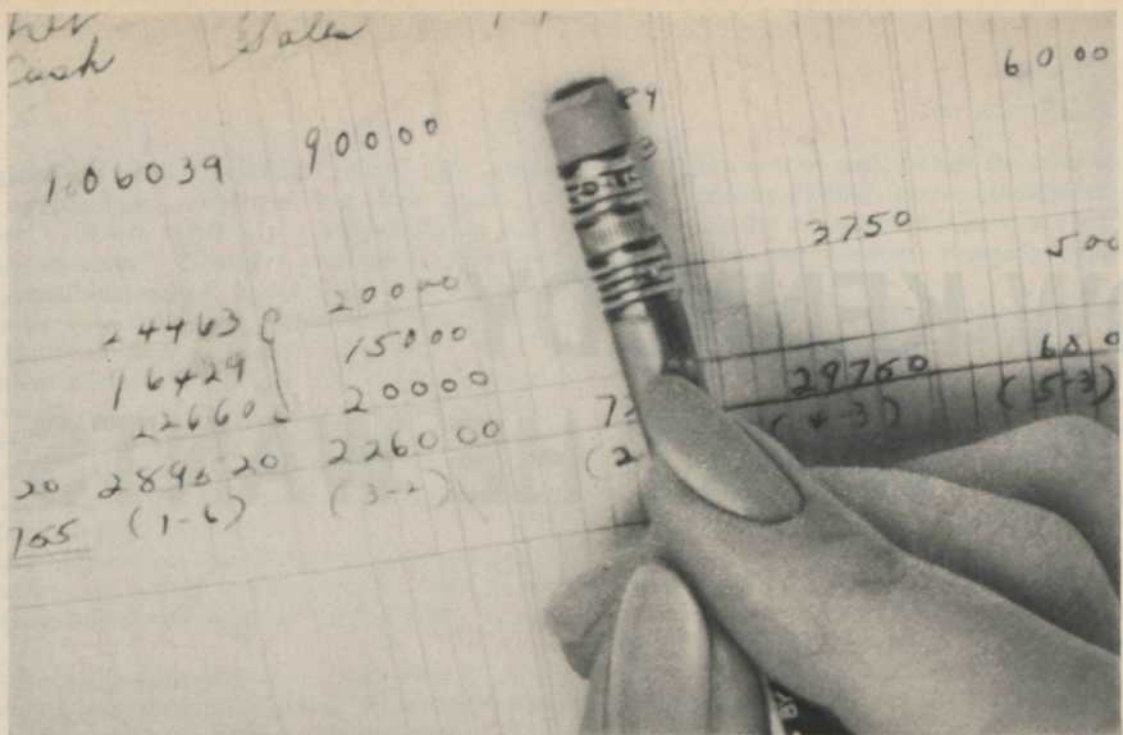 Cash Sales
6000
106039 90000
2750
500
24463 20000
16429 15000
22660 20000
29750
(4-3) (5-3)
20 289620 226000
165 (1-6) (3-2) (2